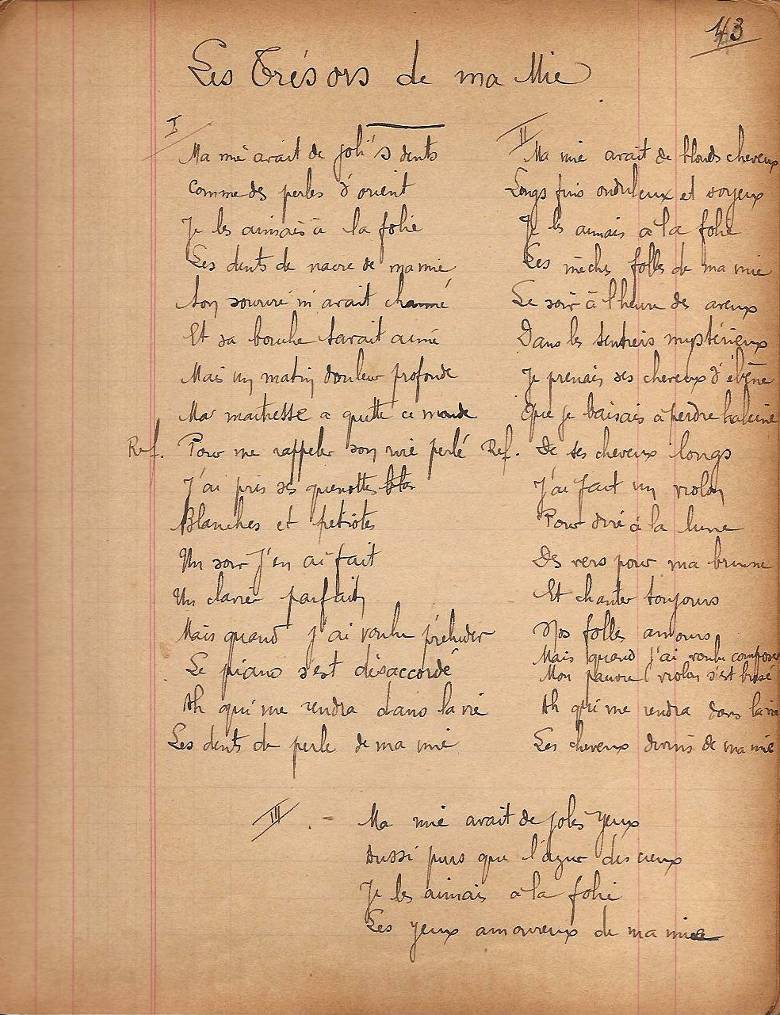 43
Les Trésors de ma Mie
I
Ma mie avait de joli's dents
Comme des perles d'orient
Je les aimais à la folie
Les dents de nacre de ma mie
Son sourire m'avait charmé
Et sa bouche
Mais un matin douleur profonde
Ma maitresse a quitté ce monde
Ref. Pour me rappeler son rire perlé
J'ai pris ses quenottes
Blanches et petiotes
Un soir j'en ai fait
Un clavier parfait
Mais quand j'ai voulu préluder
Le piano s'est désaccordé
Ah qui me rendra dans la vie
Les dents de perle de ma mie
II
Ma mie avait de blonds cheveux
Longs fins onduleux et soyeux
Je les aimais à la folie
Les mèches folles de ma mie
Le soir à l'heure des aveux
Dans les sentiers mystérieux
Je prenais ses cheveux d'ébène
Que je baisais à perdre haleine
Ref. De ses cheveux longs
J'ai fait un violon
Pour dire à la lune
Des vers pour ma brune
Et chanter toujours
Nos folles amours
Mais quand j'ai voulu composer
Mon pauvre violon s'est brisé
Ah qui me rendra dans la vie
Les cheveux divins de ma mie
III .-
Ma mie avait de jolis yeux
Aussi purs que l'azur des cieux
Je les aimais à la folie
Les yeux amoureux de ma mie